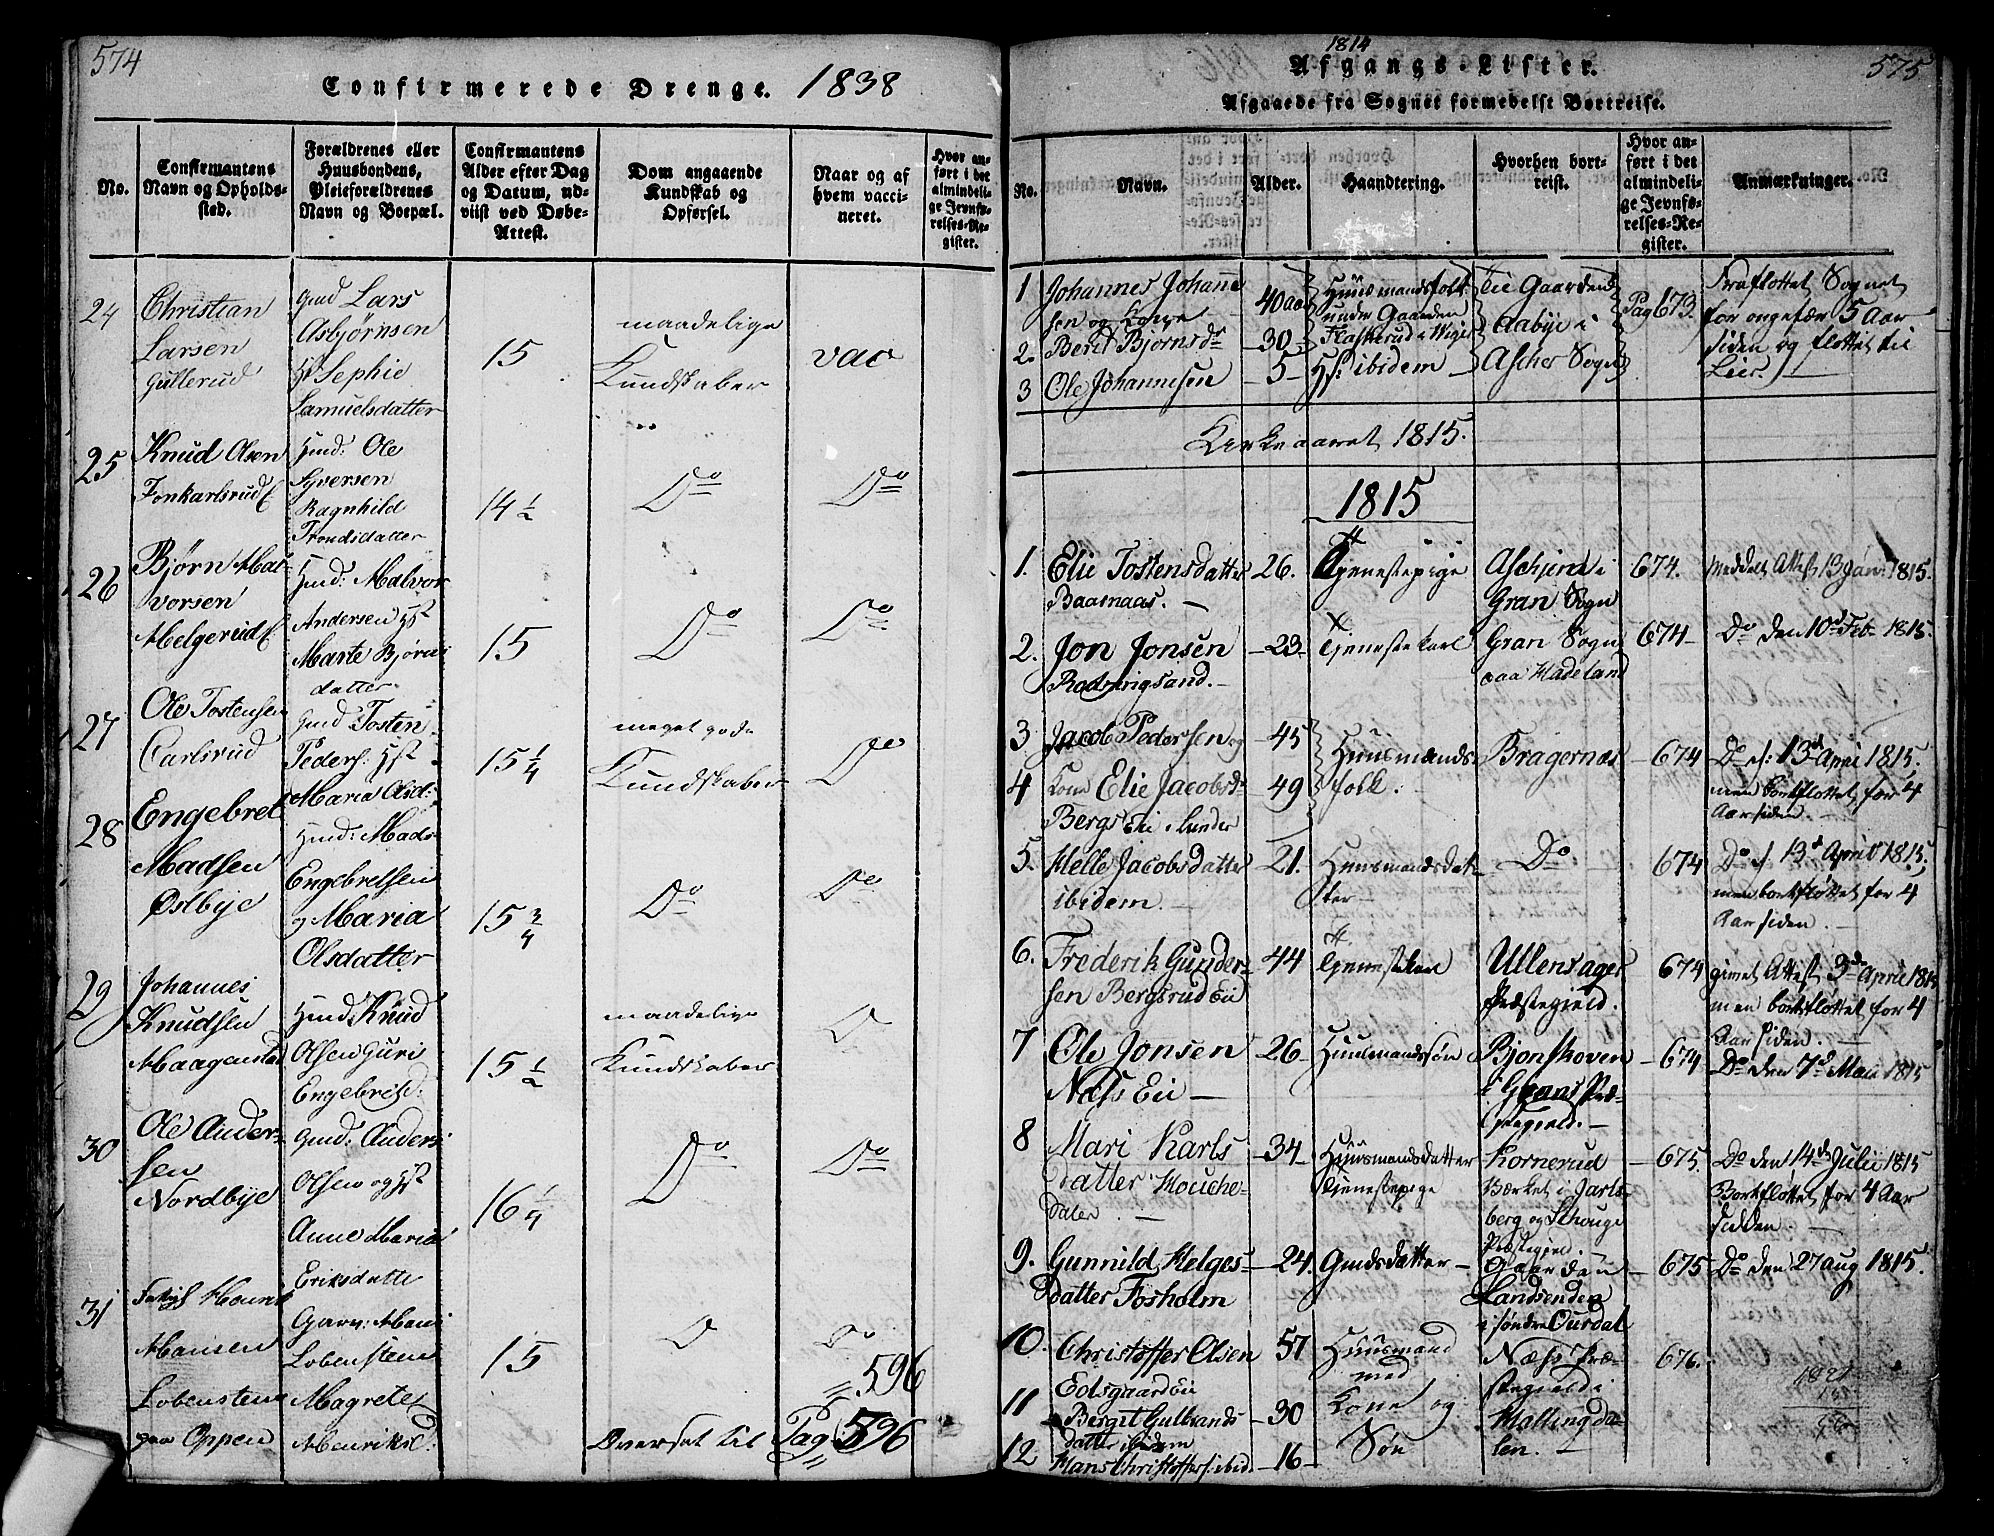 574
Confirmerede Drenge. 1838
No.
Confirmantens Navn og Opholds-sted.
Forældrenes eller Huusbondens, Pleieforældrenes Navn og Boepæl.
Confirmantens Alder efter Dag og Datum, ud-viist ved Døbe-Attest.
Dom angaaende Kundskab og Opførsel.
Naar og af hvem vacci-neret.
Hvor an-ført i det almindeli-ge Jevnfø-relses-Re-gister.
24
Christian
Larsen
Gullerud
Gmd Lars
Asbjørnsen
Sephie
Samuelsdatter
15
maadelige
Kundskaber
vac
25
Knud Olsen
Jonkarlsrud
Hmd: Ole
Syversen
Ragnhild
Trondsdatter
14 1/2
Do
Do
26
Bjørn Hal-
vorsen
Helgerud
Hmd: Halvor
Andersen
Marte Bjørns
datter
15
Do
Do
27
Ole Tostensen
Carlsrud
Gmd Tosten
Peders:
Maria Olsd:
15 1/4
meget gode
Kundskaber
Do
28
Engebret
Madsen
Østbye
Hmd: Mads
Engebretsen
og Maria
Olsdatter
15 3/4
Do
Do
29
Johannes
Knudsen
Haagenstad
Hmd: Knud
Olsen Guri
Engebretsd:
15 1/2
maadelige
Kundskaber
D
30
Ole Ander-
sen
Nordbye
Gmd: Anders
Olsen og
Anne Maria
Eriksdatte
16 1/4
Do
Do
31
Hansen
Lobensteen
paa Oppen
Garv: Hans
Lobensteen
Magrete
Henriksd:
15
D
Do
596
Oversat til Pag 596
1814
575
Afgangs-Lister.
Afgaaede fra Sognet formedelst Bortreise.
No.
Navn.
Alder.
Haandtering.
Hvorhen bort-reist.
Hvor an-ført i det almindeli-ge Jevnfø-relses-Re-gister.
Anmærkninger.
1
Johannes Johanne
sen og Kone
40 aar
Huusmandsfolk
under Gaarden
Flaskerud i Wiger
Til Gaarden
Aabye i
Ascher Sogn
Pag 673.
Fraflottet Sognet
for ongefær 5 Aar
siden og flottet til
Lier.
2.
Berit Bjørnsdr
30
3
Ole Johannesen
5
Hs: ibidem
Kirkeaaret 1815.
1815
1.
Elie Tostensdatter
Baasnaas.
26.
Tjenestepige
Aschim i
Gran Sogn
674.
Meddelt Attest 13 Jan: 1815.
2.
Jon Jonsen
23
Tjenestekarl
Gran Sogn
paa Hadeland
674
Do den 10d Feb 1815.
3
Jacob Pedersen og
45
Huusmands-
folk.
Bragernæs
674
Do d: 13d April 1815,
men bortflottet for 4
Aar siden.
4
Kone Elie Jacobsd
49
5.
Helle Jacobsdatter
ibidem.
21.
Huusmandsdat-
ter
Do
674
Do d 13d April 1815,
men bortflottet for 4
Aar siden.
6.
Frederik Gunder-
sen Bergsrud Eii
44
Tjenestekarl
Ullensager
Præstegield.
674
givet Attest 3de April 1815
men bortflottet for 4
Aar siden.
7
Ole Jonsen
Næs Eii
26
Huusmandssøn
Bjonskoven
i Grans Præ-
stegield.
674
Do den 7d Maii 1815
8
Mari Karls
datter Houche-
daler.
34
Huusmandsdatter
Tjenestepige
Kornerud
Værket i Jarls-
berg og Schouge
Præstegield.
675.
Do den 14de Julii 1815
Bortflottet for 4 Aar
sidden.
9.
Gunnild Helges-
datter Fosholm
24.
Gmdsdatter
Gaarden
Landsenden
i søndre Ourdal
675
Do den 27 aug 1815.
10.
Christoffer Olsen
Edsgaard Eii
57
Huusmand
med
Næss Præ-
stegield i
Hallingda-
len.
676.
11
Bergit Gulbrands
datter ibidem
30
Kone og
12
Hans Christoffers: ibid.
16
Søn